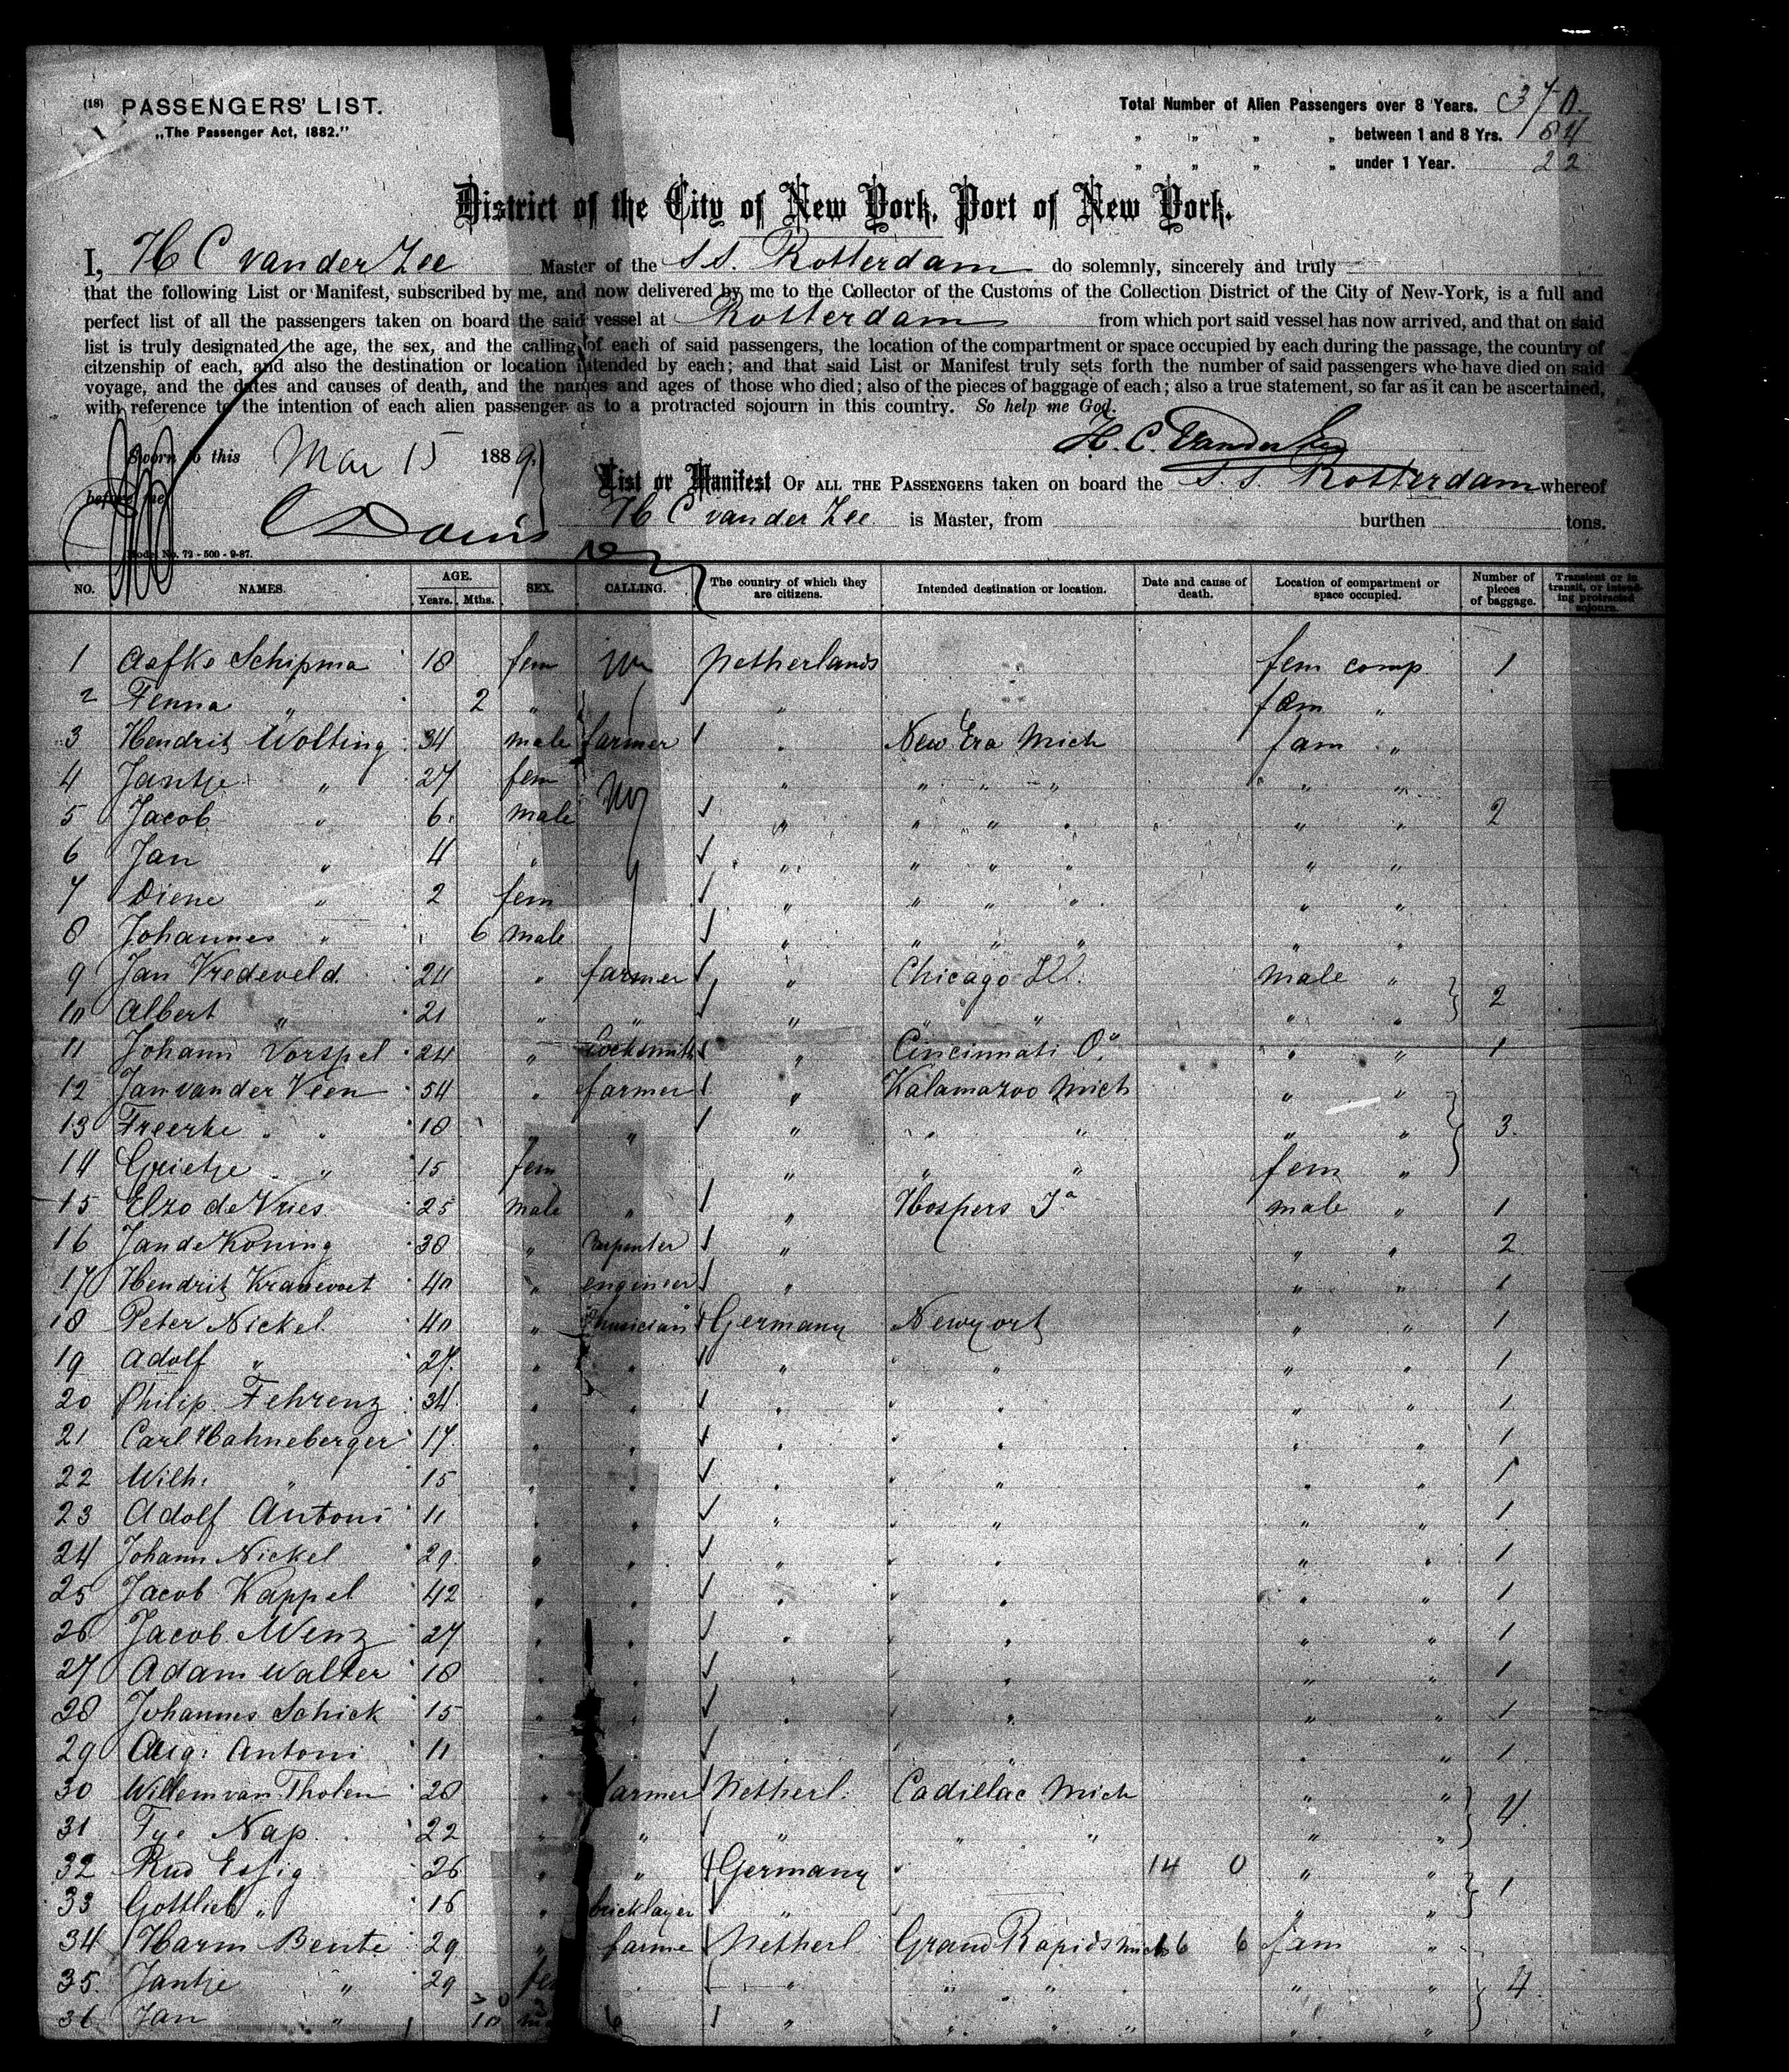 (18) PASSENGERS' LIST.
„The Passenger Act, 1882."
Total Number of Alien Passengers over 8 Years. 370
„ „ „ „ between 1 and 8 Yrs. 84
„ „ „ „ under 1 Year. 22
District of the City of New York, Port of New York.
I, H C van der Zee Master of the S.S. Rotterdam do solemnly, sincerely and truly
that the following List or Manifest, subscribed by me, and now delivered by me to the Collector of the Customs of the Collection District of the City of New-York, is a full and
perfect list of all the passengers taken on board the said vessel at Rotterdam from which port said vessel has now arrived, and that on said
list is truly designated the age, the sex, and the calling of each of said passengers, the location of the compartment or space occupied by each during the passage, the country of
citzenship of each, and also the destination or location intended by each; and that said List or Manifest truly sets forth the number of said passengers who have died on said
voyage, and the dates and causes of death, and the names and ages of those who died; also of the pieces of baggage of each; also a true statement, so far as it can be ascertained,
with reference to the intention of each alien passenger as to a protracted sojourn in this country. So help me God.
H. C. Vander Zee
Sworn to this Mar 15 1889
before me
List or Manifest OF ALL THE PASSENGERS taken on board the S.S. Rotterdam whereof
H C van der Zee is Master, from burthen tons.
Model No. 72 - 500 - 9-87.
NO. NAMES. AGE. Years. Mths. SEX. CALLING. The country of which they are citizens. Intended destination or location. Date and cause of death. Location of compartment or space occupied. Number of pieces of baggage. Transient or in transit, or intending protracted sojourn.
1 Aafke Schipma 18 fem Netherlands fem comp 1
2 Fenna „ 2 „ „ fem „
3 Hendrik Wolting 34 male farmer „ New Era Mich fam „
4 Jantje „ 27 fem „ „ „ „ „ „
5 Jacob „ 6 male „ „ „ „ „ „ 2
6 Jan „ 4 „ „ „ „ „ „ „
7 Diene „ 2 fem „ „ „ „ „ „
8 Johannes „ 6 male „ „ „ „ „ „
9 Jan Vredeveld 24 „ farmer „ Chicago Ill. male „
10 Albert „ 21 „ „ „ „ „ „ „ 2
11 Johann Vorspel 24 „ locksmith „ Cincinnati O. „ „ 1
12 Jan van der Veen 54 „ farmer „ Kalamazoo Mich „ „
13 Freerke „ „ 18 „ „ „ „ „ „ „ 3.
14 Grietje „ „ 15 fem „ „ „ fem „
15 Elzo de Vries 25 male „ „ Hospers Ia male „ 1
16 Jan de Koning 38 „ Carpenter „ „ „ 2
17 Hendrik Kranevoet 40 „ engineer „ „ „ 1
18 Peter Nickel 40 „ musician Germany Newyork „ „ 1
19 Adolf „ 27 „ „ „ „ „ „ 1
20 Philip Fehrenz 34 „ „ „ „ „ „ 1
21 Carl Hahneberger 17 „ „ „ „ „ „ 1
22 Wilh. „ 15 „ „ „ „ „ „ 1
23 Adolf Antoni 11 „ „ „ „ „ „ 1
24 Johann Nickel 29 „ „ „ „ „ „ 1
25 Jacob Kappel 42 „ „ „ „ „ „ 1
26 Jacob Menz 27 „ „ „ „ „ „ 1
27 Adam Walter 18 „ „ „ „ „ „ 1
28 Johannes Schick 15 „ „ „ „ „ „ 1
29 Aug: Antoni 11 „ „ „ „ „ 1
30 Willem van Tholen 28 „ farmer Netherl. Cadillac Mich „ „
31 Tye Nap 22 „ „ „ „ „ „ „ 4.
32 Rud Essig 26 „ „ Germany 14 0 „ „
33 Gottlieb „ 16 „ bricklayer „ „ „ 1
34 Harm Bente 29 „ farme Netherl Grand Rapids Mich 6 6 fam „
35. Jantje „ 29 fem „ „ „ „ „ 4
36 Jan „ 10 „ „ „ „ „